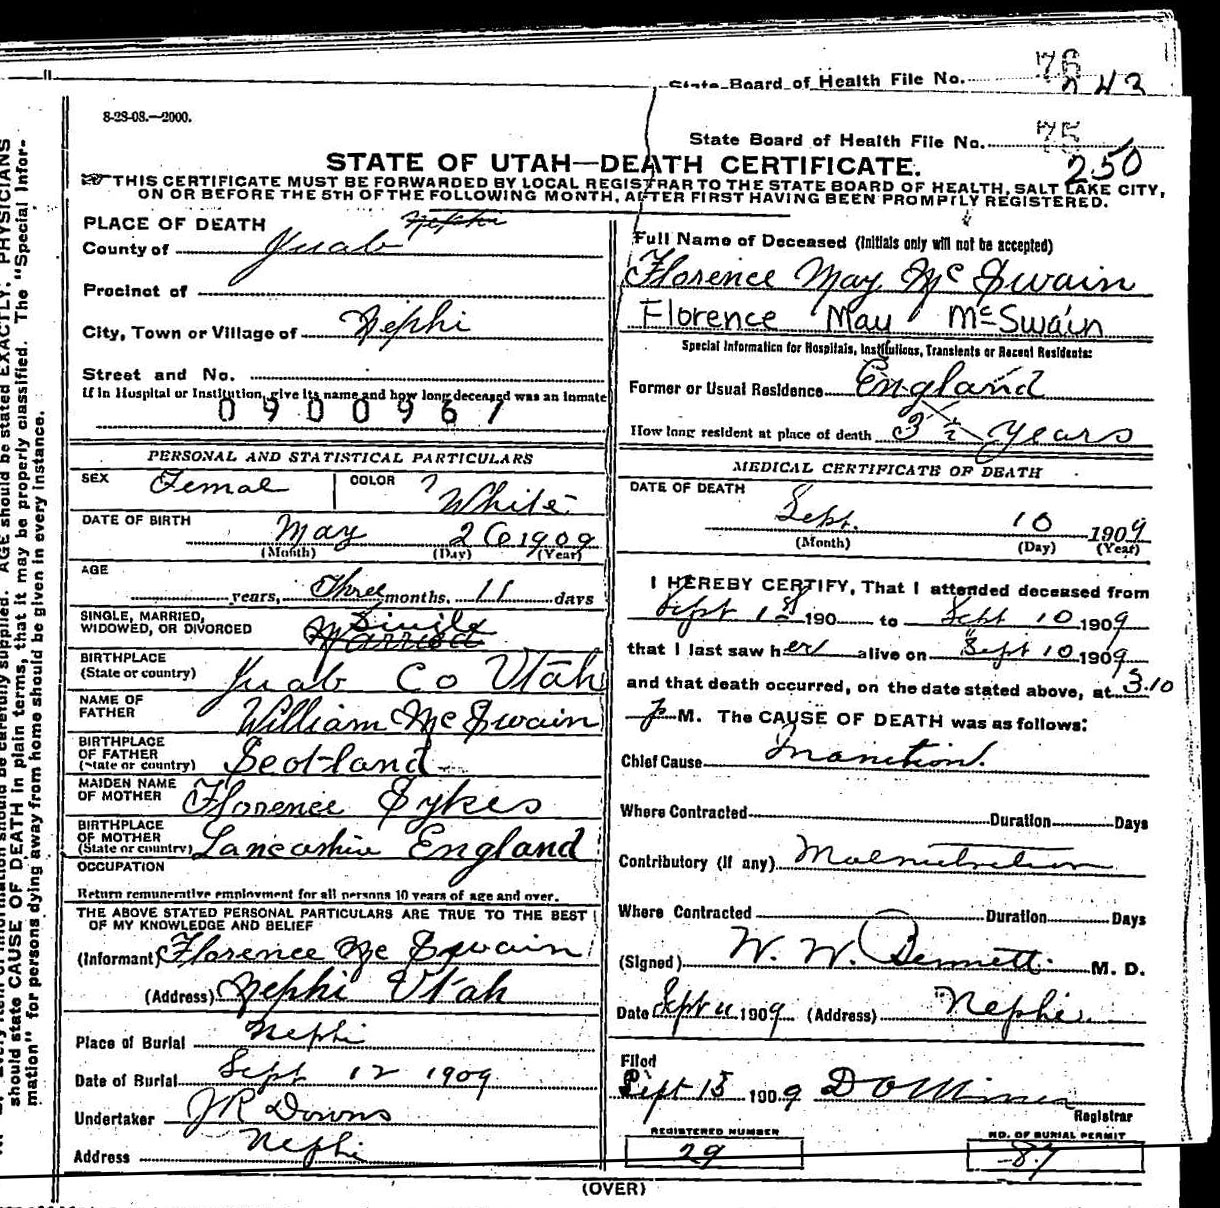 State Board of Health File No. 76
243
8-28-08.—2000.
State Board of Health File No. 75
250
STATE OF UTAH—DEATH CERTIFICATE.
THIS CERTIFICATE MUST BE FORWARDED BY LOCAL REGISTRAR TO THE STATE BOARD OF HEALTH, SALT LAKE CITY,
ON OR BEFORE THE 5TH OF THE FOLLOWING MONTH, AFTER FIRST HAVING BEEN PROMPTLY REGISTERED.
PLACE OF DEATH Nephi
County of Juab
Precinct of
City, Town or Village of Nephi
Street and No.
If in Hospital or Institution, give its name and how long deceased was an inmate
0900961
PERSONAL AND STATISTICAL PARTICULARS
SEX Femal COLOR ? White
DATE OF BIRTH May 26 1909
(Month) (Day) (Year)
AGE
years, Three months, 11 days
SINGLE, MARRIED,
WIDOWED, OR DIVORCED Single Married
BIRTHPLACE
(State or country) Juab Co Utah
NAME OF
FATHER William McSwain
BIRTHPLACE
OF FATHER
(State or country) Scotland
MAIDEN NAME
OF MOTHER Florence Sykes
BIRTHPLACE
OF MOTHER
(State or country) Lancashire England
OCCUPATION
Return remunerative employment for all persons 10 years of age and over.
THE ABOVE STATED PERSONAL PARTICULARS ARE TRUE TO THE BEST
OF MY KNOWLEDGE AND BELIEF
(Informant) Florence McSwain
(Address) Nephi Utah
Place of Burial Nephi
Date of Burial Sept 12 1909
Undertaker JR Downs
Address Nephi
Full Name of Deceased (Initials only will not be accepted)
Florence May McSwain
Florence May McSwain
Special Information for Hospitals, Institutions, Transients or Recent Residents:
Former or Usual Residence England
How long resident at place of death 3 1/2 years
MEDICAL CERTIFICATE OF DEATH
DATE OF DEATH
Sept. 10 1909
(Month) (Day) (Year)
I HEREBY CERTIFY, That I attended deceased from
Sept 1st 190 to Sept 10 1909
that I last saw her alive on Sept 10 1909
and that death occurred, on the date stated above, at 3.10
P M. The CAUSE OF DEATH was as follows:
Chief Cause Inanition.
Where Contracted Duration Days
Contributory (if any) Malnutrition
Where Contracted Duration Days
(Signed) W. W. Bennett M. D.
Date Sept 11 1909 (Address) Nephi
Filed
Sept 15 1909
Registrar
REGISTERED NUMBER
29
NO. OF BURIAL PERMIT
87
(OVER)
should be carefully supplied. AGE should be stated EXACTLY. PHYSICIANS
should state CAUSE OF DEATH in plain terms, that it may be properly classified. The "Special Infor-
mation" for persons dying away from home should be given in every instance.